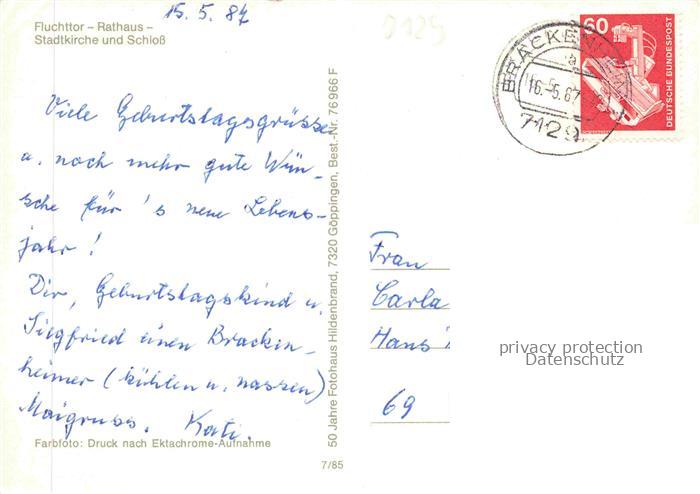 15.5.87
7129
Fluchttor – Rathaus –
Stadtkirche und Schloß
Viele Geburtstagsgrüsse
u. noch mehr gute Wün-
sche für's neue Lebens-
jahr!
Dir, Geburtstagskind u.
Siegfried einen Bracken-
heimer (kühlen u. nassen)
Maigruss. Kati.
Farbfoto: Druck nach Ektachrome-Aufnahme
7/85
50 Jahre Fotohaus Hildenbrand, 7320 Göppingen, Best.-Nr. 76 966 F
BRACKENHEIM
a
16.-5.87
7129
60
DEUTSCHE BUNDESPOST
Frau
Carla
Hans
69
privacy protection
Datenschutz